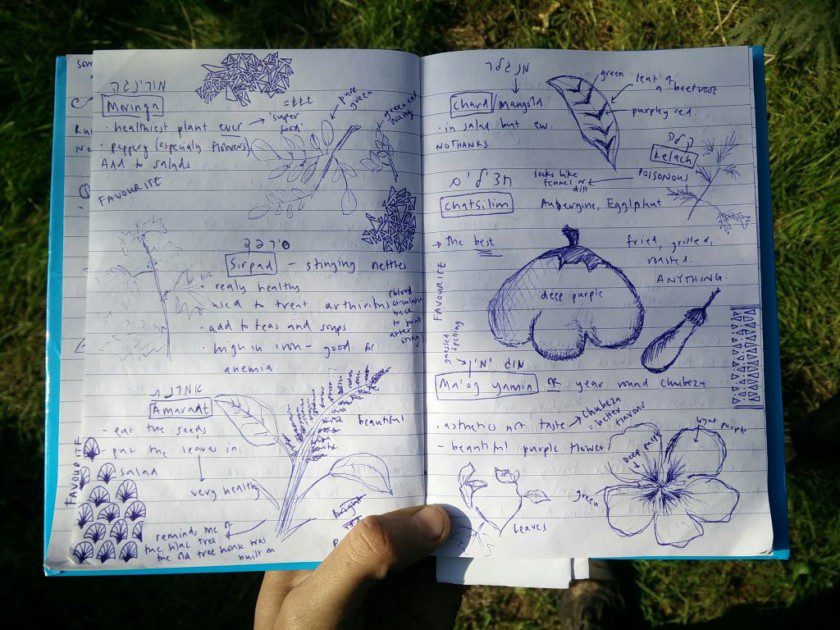 מורינגה
Moringa
• healthiest plant ever → 'super food'
• peppery (especialy flowers)
Add to salads
FAVOURITE
pure green
סירפד
Sirpad - stinging nettles
• really healthy
• used to treat arthiritus
• add to teas and soups
• high in iron - good for
anemia
blood
back
to joint
after
sting
Amarant
- eat the seeds
- put the leaves in
salad
very healthy
beautiful
FAVOURITE
reminds me of
the lilac tree
the old tree house was
built on
מנגלד
Chard/Mangold
• in salad but ew..
NO THANKS.
green
leaf of
a beetroot
purpley red
Kelach
POISONOUS
looks like
fennel or dill
חצלים
Chatsilim
Aubergine, Eggplant
→ The best
FAVOURITE
fried, grilled,
roasted.
ANYTHING.
deep purple
guessed
spelling
Ma'og yamia OR year round chubeza
• asthetics not taste → Chubeza
= better
flavour
- beautiful purple flower
deep purple
light purple
green
leaves